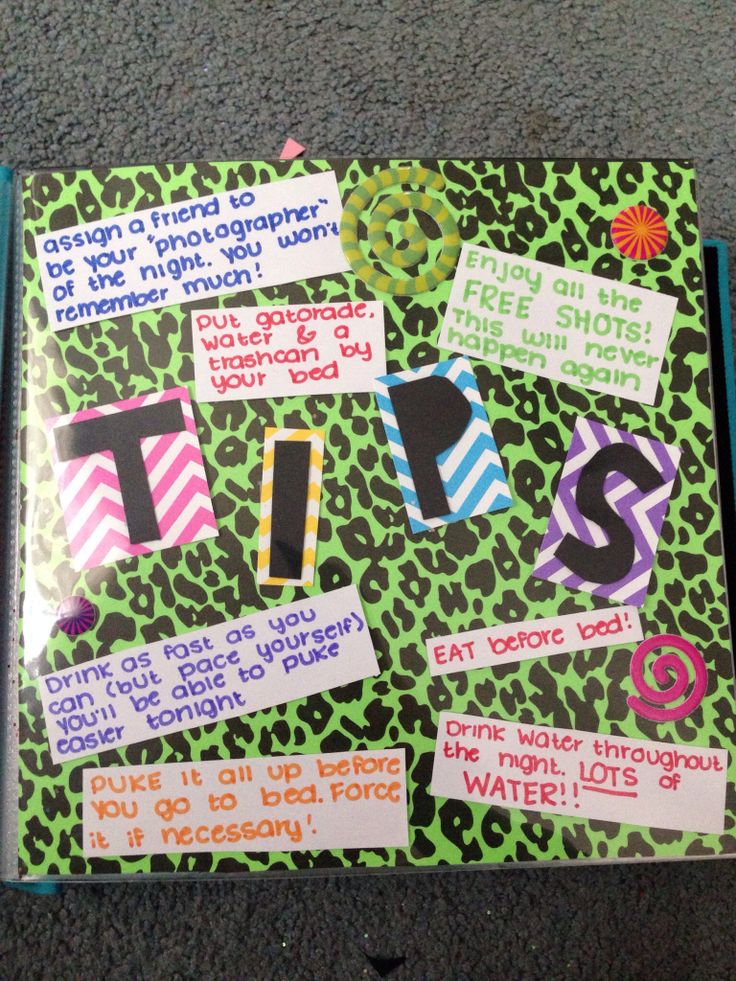 assign a friend to
be your "photographer"
of the night. you won't
remember much!
Put gatorade,
water & a
trashcan by
your bed
Enjoy all the
FREE SHOTS!
This will never
happen again
TIPS
Drink as fast as you
can (but pace yourself)
you'll be able to puke
easier tonight
EAT before bed!
PUKE it all up before
you go to bed. Force
it if necessary!
Drink water throughout
the night. LOTS of
WATER!!